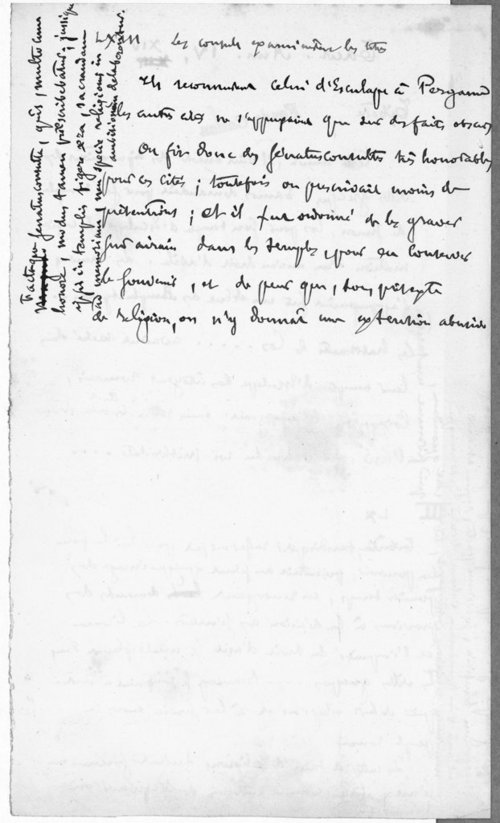 LXIII Les consuls examinèrent les titres
Ils reconnurent celui d'Esculape à Pergame
les autres cités ne s'appuyaient que sur des faits obscurs
On fit donc des sénatusconsultes très honorables
pour ces cités ; toutefois on prescrivait moins de
prétentions ; et il fut ordonné de les graver
sur airain dans les temples, pour en conserver
le souvenir, et de peur que, sous prétexte
de religion, on n'y donnât une extension abusive
Factaque senatusconsulta, quis, multo cum
honore, modus tamen praescribebatur ; jussique
ipsis in templis figere aera, sacrandam
ad memoriam, neu specie religionis in
ambitionem delaberentur.